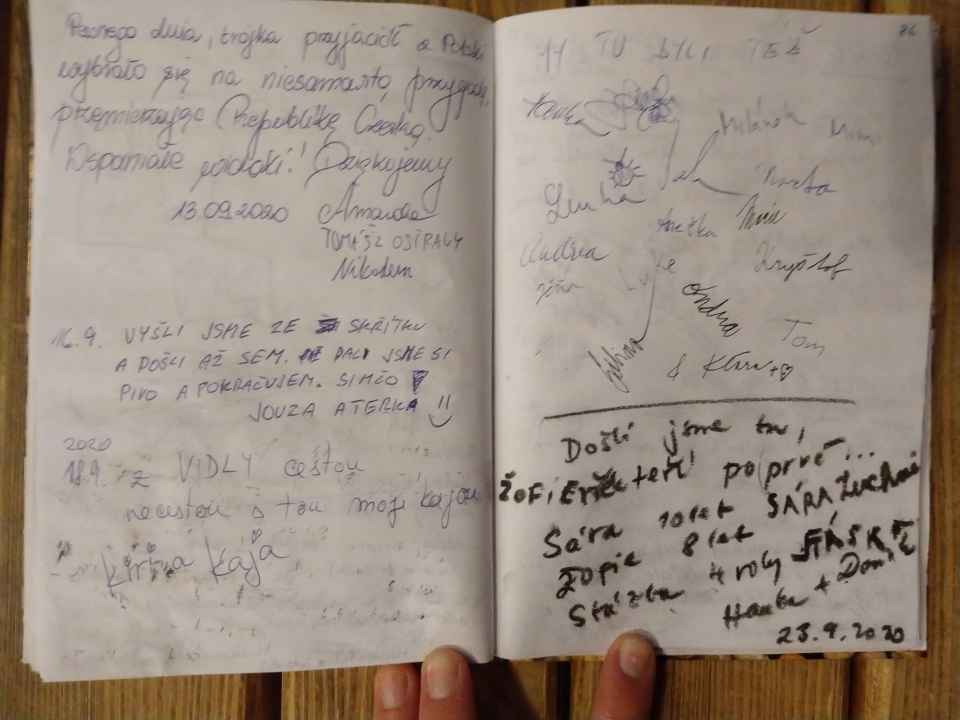 Pewnego dnia, trójka przyjaciół z Polski
wybrało się na niesamowitą przygodę,
przemierzając Republikę Czeską.
Wspaniałe widoki! Dziękujemy
13.09.2020 Amanda
TOMASZ OSTRALY
Nikodem
16.9. VYŠLI JSME ZE SKŘÍTKU
A DOŠLI AŽ SEM. DALI JSME SI
PIVO A POKRAČUJEM. SIMČO
JOUZA A TERKA !!
2020
18.9. z VIDLY cestou
necestou s tou mojí kájou
Kája
86
MY TU BYLI TEŽ
Hanka
Milánek
Lenka
Bára
Andrea
Anežka
Kryštof
Ondra
Tom
& Klára + ♡
Došli jsme tu,
ŽOFIE teří poprvé...
Sára 10 let SÁRA
Žofie 8 let
Stázka 4 roky
Hanka + Dan
23.9.2020